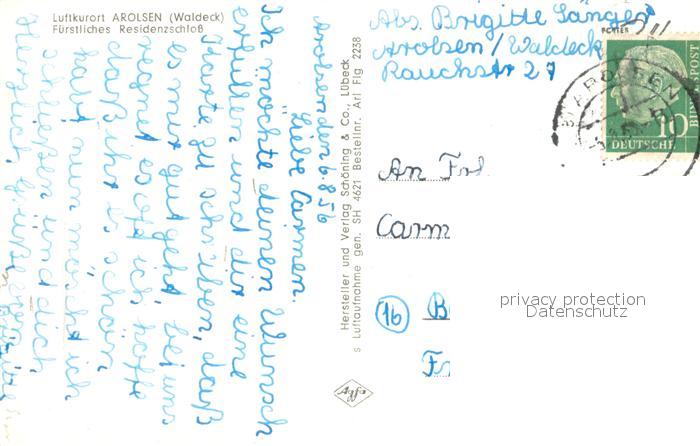 Luftkurort AROLSEN (Waldeck)
Fürstliches Residenzschloß
Arolsen den 6.8.56
Liebe Carmen.
Ich möchte deinen Wunsch
erfüllen und dir eine
Karte zu schreiben, daß
es mir gut geht, bei uns
regnet es oft ich hoffe
daß ihr es schön
habt nun möchte ich
schließen und dich
Herzlich grüßen
Brigitte
Hersteller und Verlag Schöning & Co., Lübeck
s Luftaufnahme gen. SH 4621 Bestellnr. Arl Flg 2238
Agfa
Abs. Brigitte Sänger
Arolsen/Waldeck
Rauchstr 27
AROLSEN
10
BUNDESPOST
DEUTSCHE
An Frl.
Carm
(16) B
Fr
privacy protection
Datenschutz